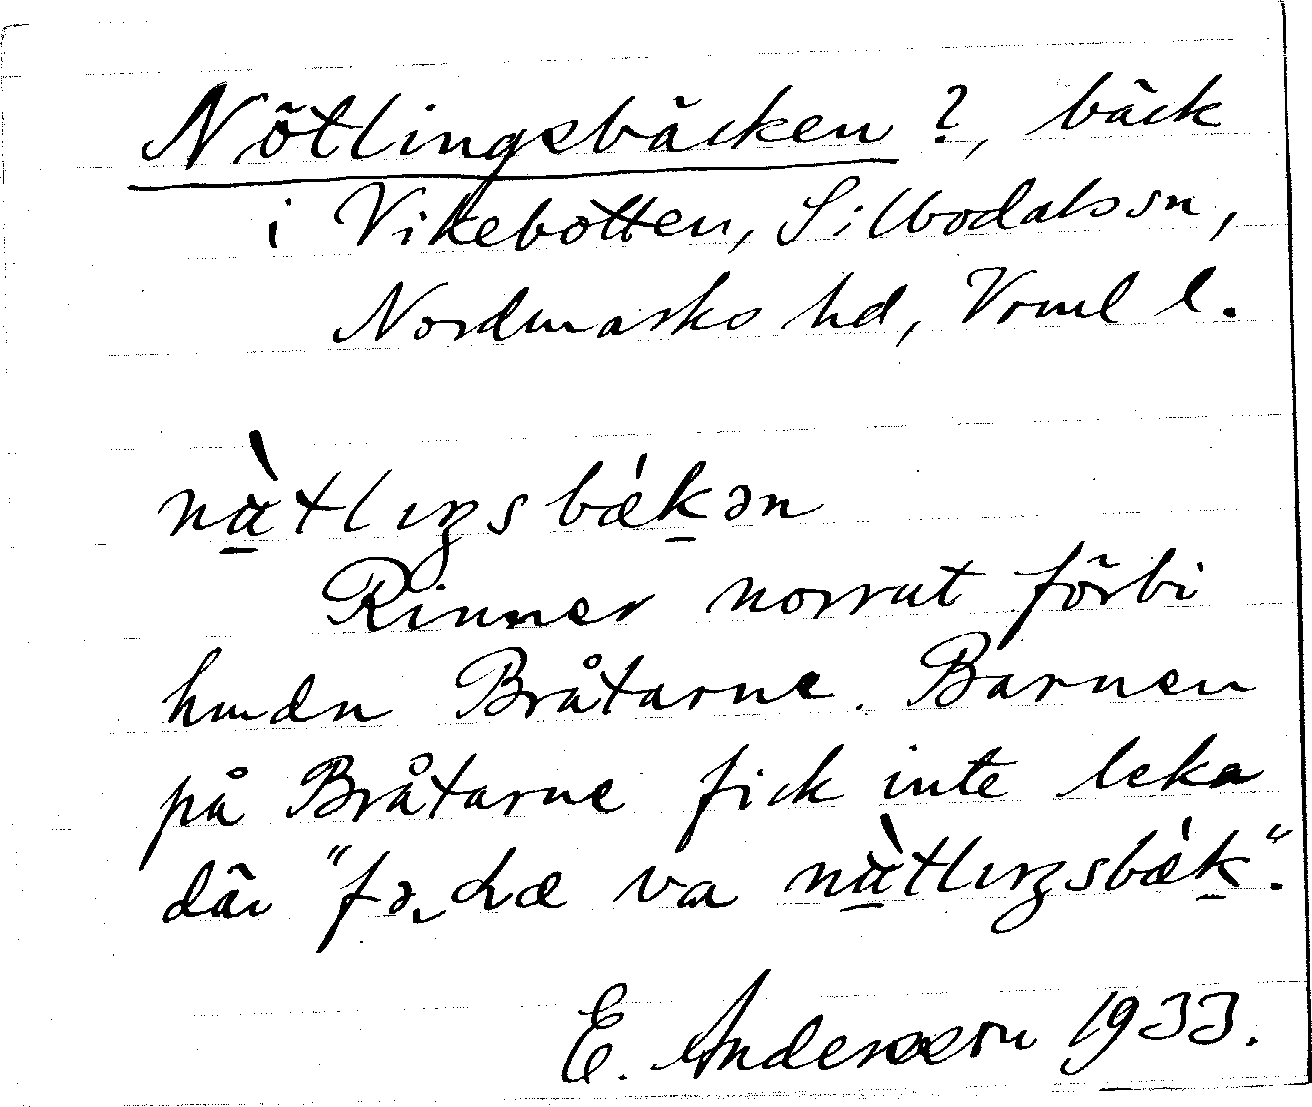 Nötlingsbäcken ?, bäck
i Vikebotten, Silbodals sn,
Nordmarks hd, Vrml l.
nὰtlıŋsbǽkən
Rinner norrut förbi
hmdn Bråtarne. Barnen
på Bråtarne fick inte leka
där "fə dæ va nὰtlıŋsbǽk".
E. Andersson 1933.